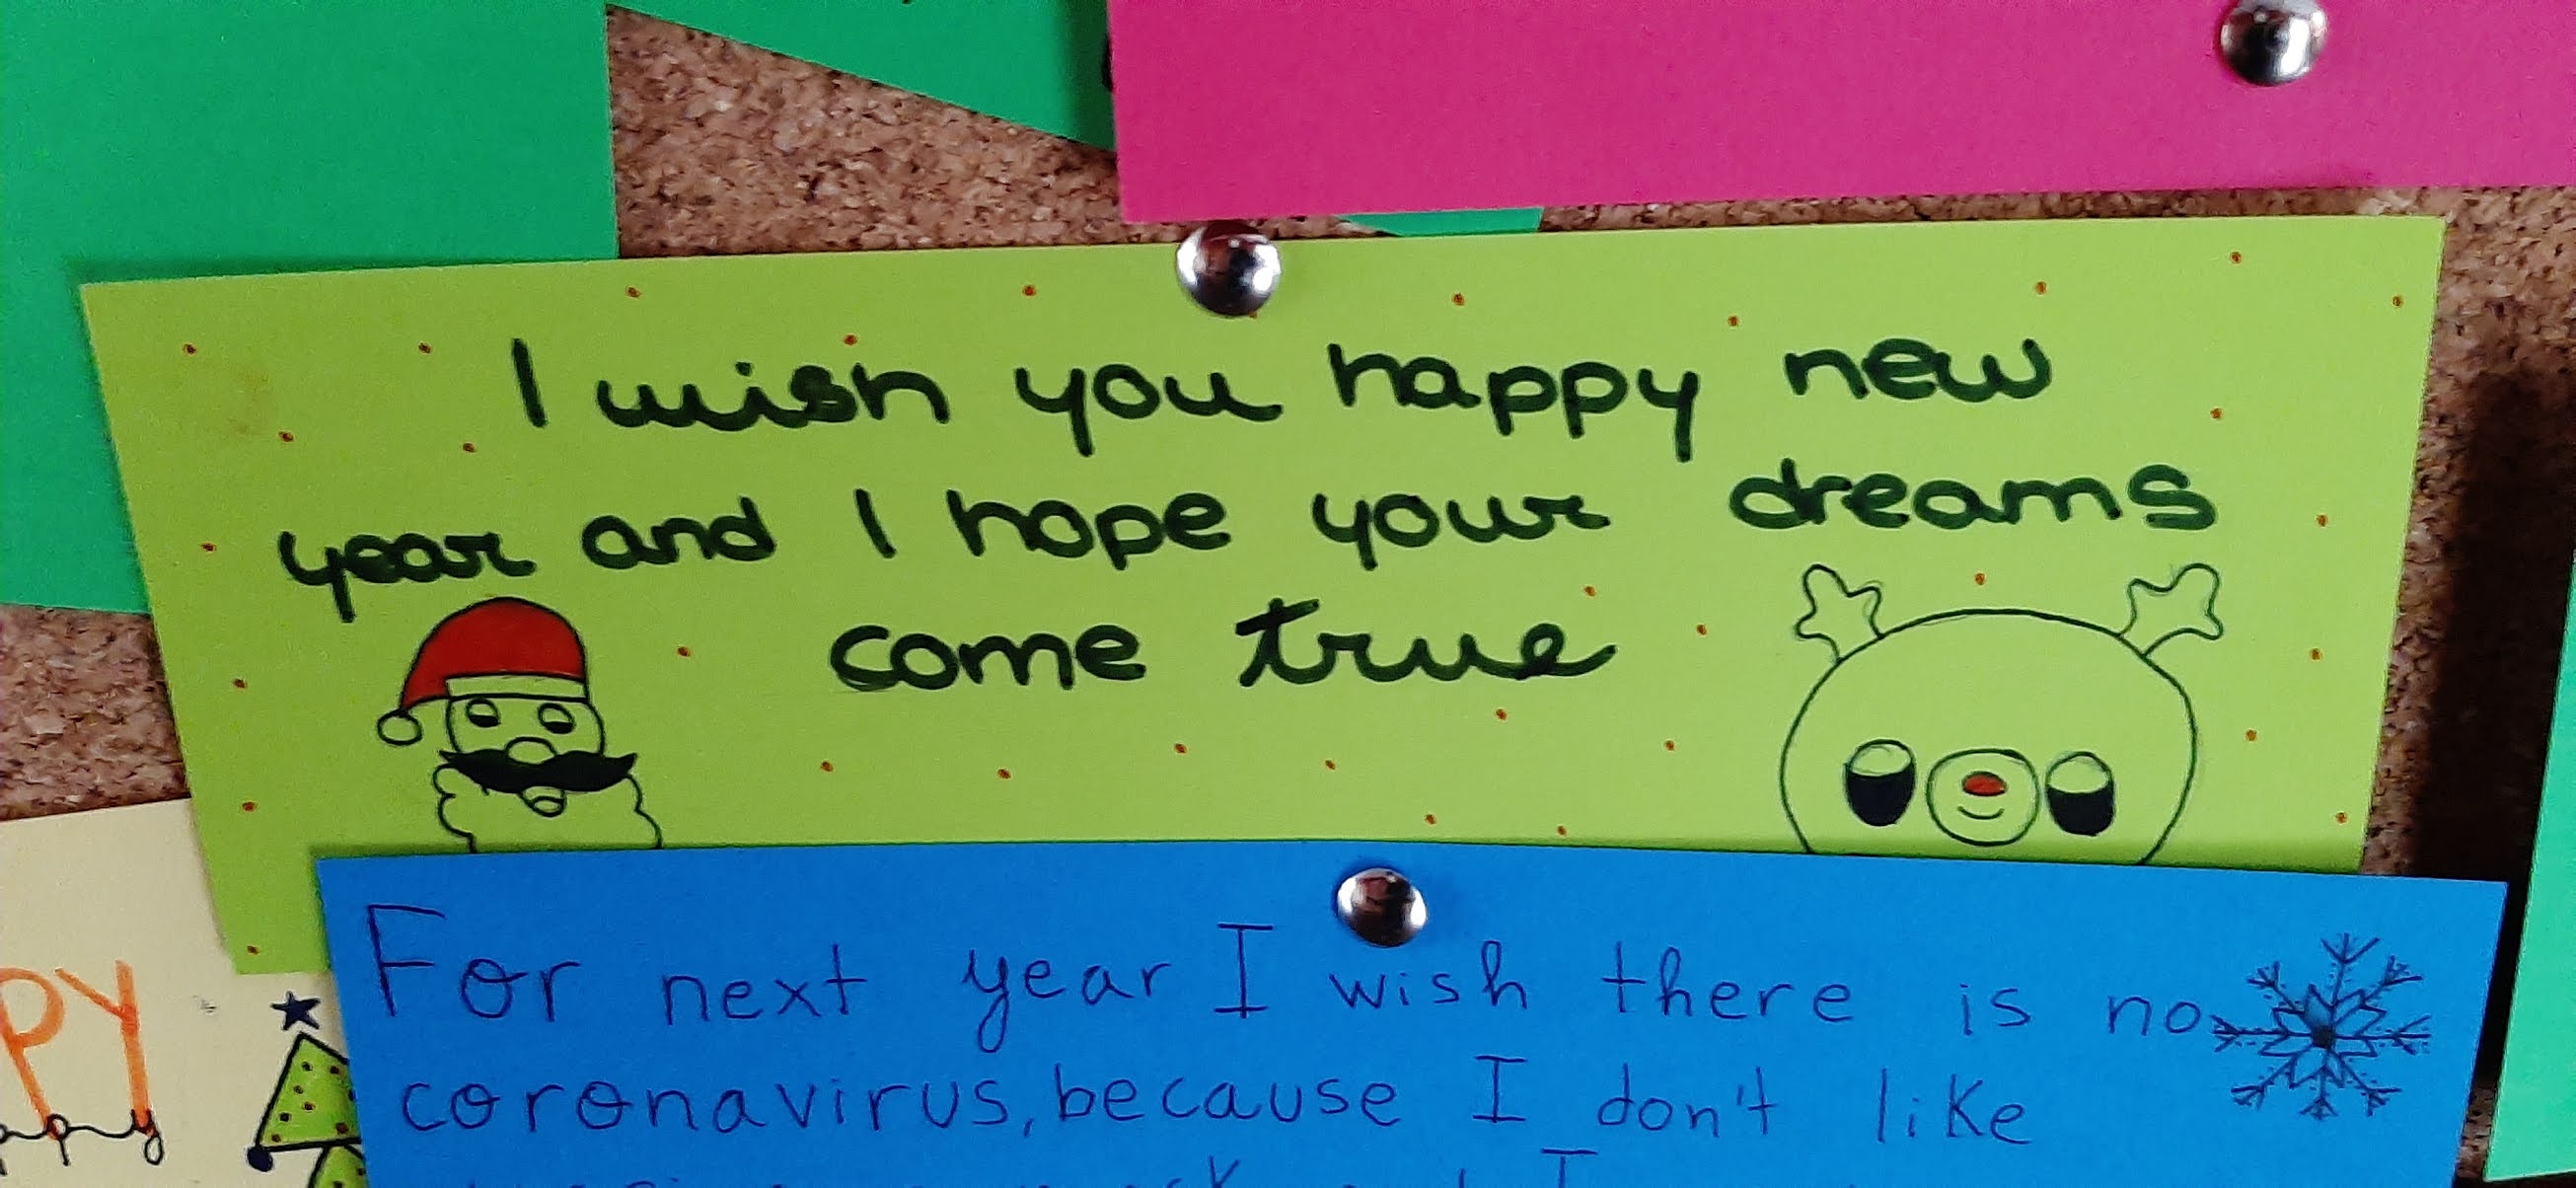 I wish you happy new
year and I hope your dreams
come true
For next year I wish there is no
coronavirus, because I don't like
PY